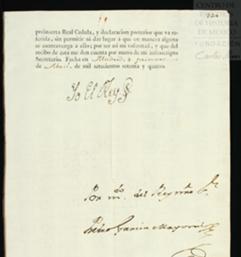 presente Real Cedula, y declaracion posterior que va re-
ferida, sin permitir ni dar lugar à que en manera alguna
se contravenga à ellas; por ser asi mi voluntad, y que del
recibo de esta me deis cuenta por mano de mi infrascripto
Secretario. Fecha en Madrid, à primero
de Abril, de mil setecientos setenta y quatro
Yo El Rey
Por m.do del Rey nro S.r
Pedro Garcia Mayoral
DE HISTORIA
DE MEXICO
FUNDACION
Carlos